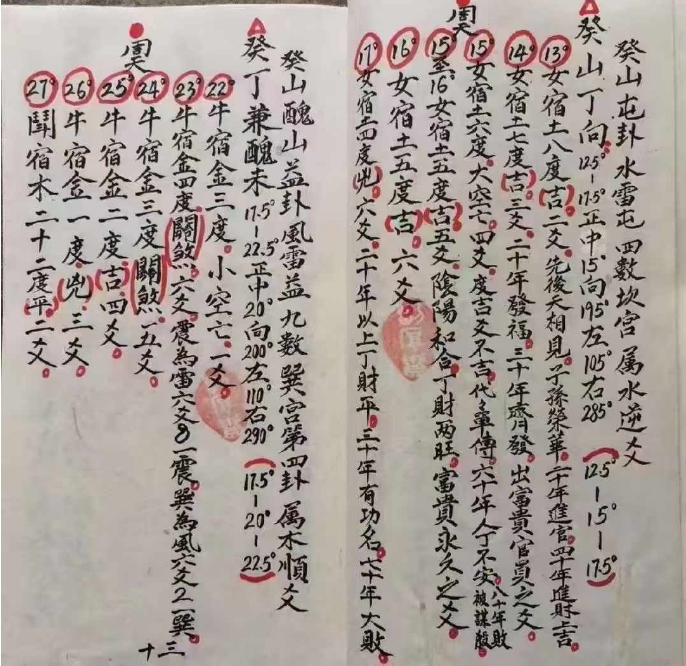 癸山屯卦水雷屯四數坎宮属水逆爻
癸山丁向12.5°-17.5°正中15°向195°左105°右285°(12.5°-15°-17.5°)
13°女宿土八度(吉)二爻先後天相見子孫榮華二十年進官四十年進財上吉
14°女宿土七度(吉)三爻二十年發福三十年齊發出富貴官員之爻
15°女宿土六度大空亡四爻度吉爻不吉代之單傳六十年人丁不安八十年敗被謀殷
15°至16°女宿土五度(吉)五爻陰陽和合丁財两旺富貴永久之爻
16°女宿土五度(吉)六爻
17°女宿土四度(兇)六爻二十年以上丁財平三十年有功名七十年大敗
周天
癸山醜山益卦風雷益九數巽宮第四卦属木順爻
癸丁兼醜未17.5°-22.5°正中20°向200°左110°右290°(17.5°-20°-22.5°)
22°牛宿金三度小空亡一爻
23°牛宿金四度(關煞)六爻震為雷六爻8一震巽為風六爻2一巽
24°牛宿金三度(關煞)五爻
25°牛宿金二度吉四爻
26°牛宿金一度(兇)三爻
27°鬪宿木二十二度平二爻
周天
十三